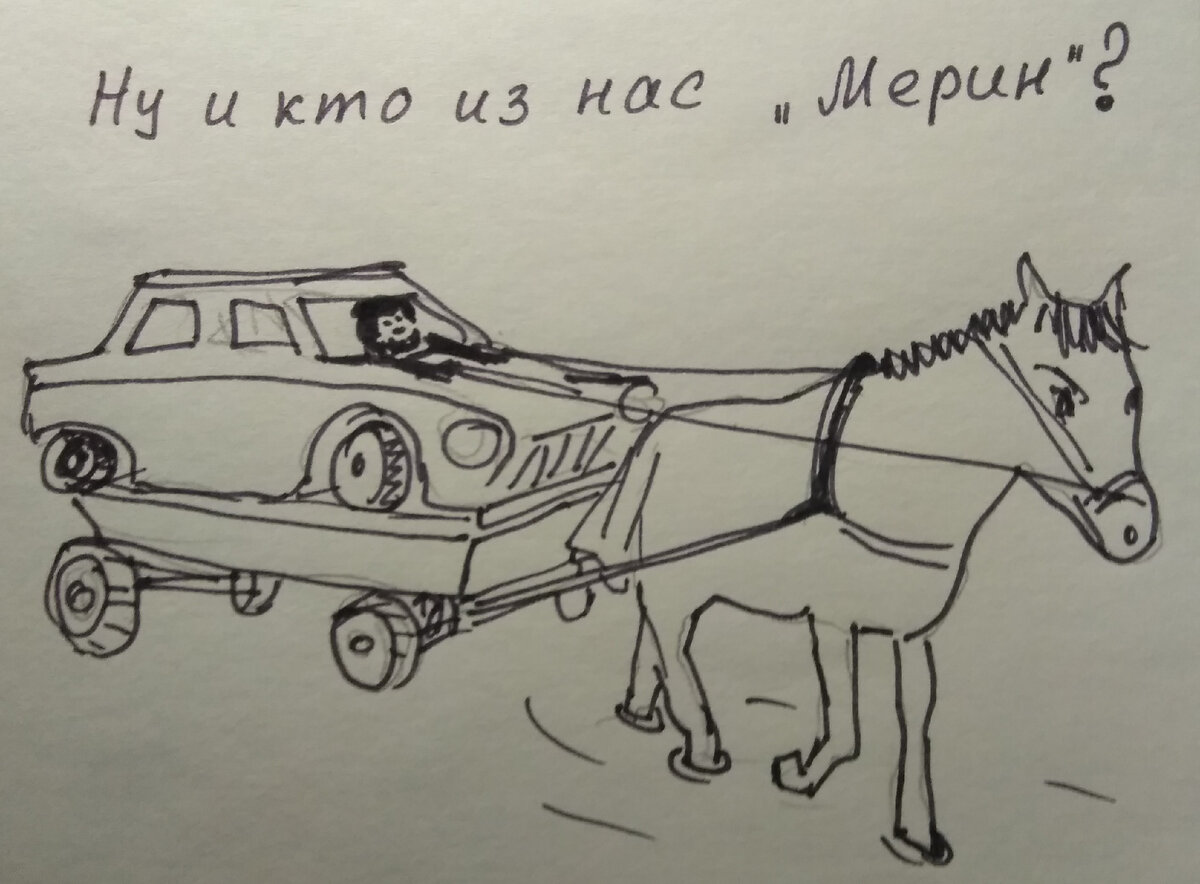 Ну и кто из нас „Мерин"?